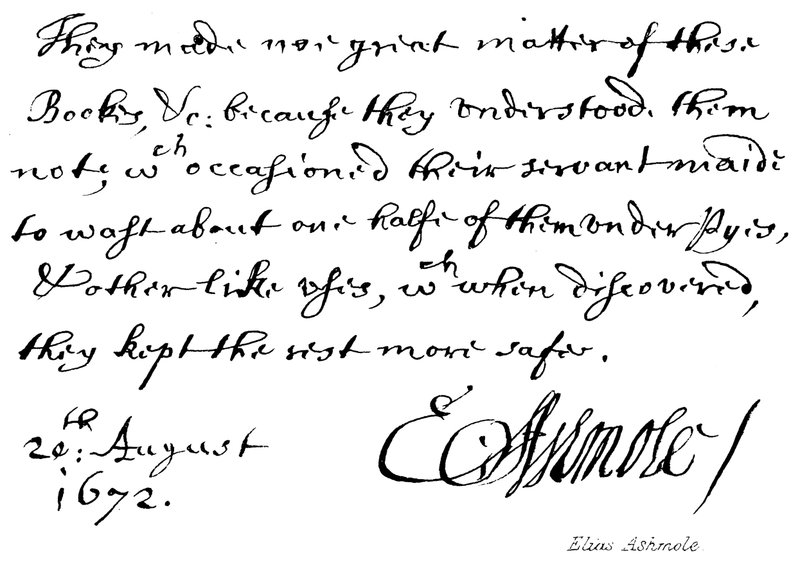 They made noe great matter of these
Bookes, &c: because they vnderstood them
not; wch occasioned their servant maide
to wast about one halfe of them vnder Pyes,
& other like vses, wch when discovered,
they kept the rest more safe.
20th: August
1672.
E Ashmole
Elias Ashmole.